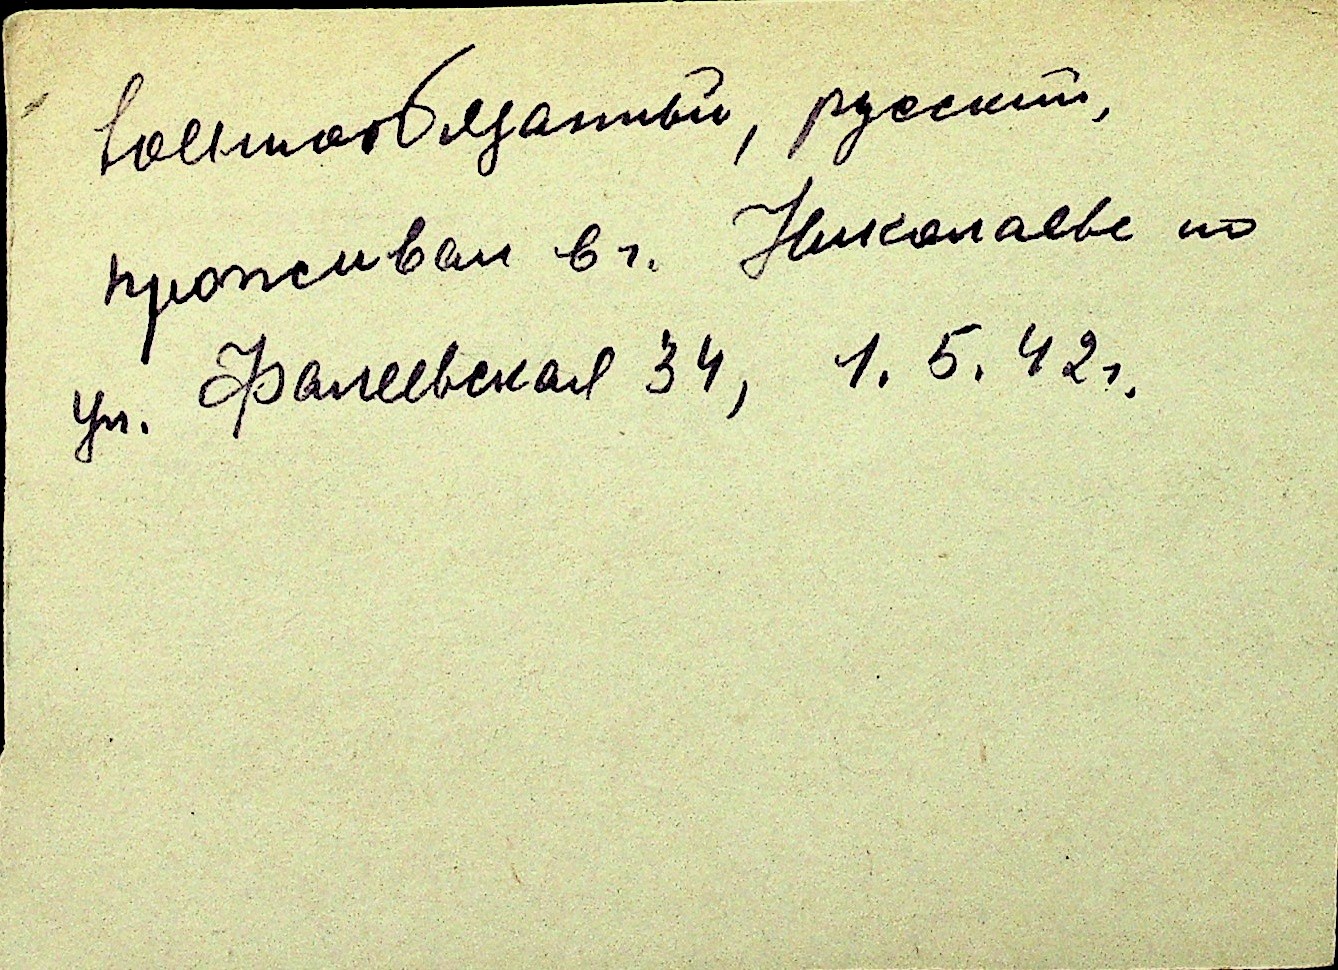 военнообязанный, русский,
проживал в г. Николаеве по
ул. Фалеевская 34, 1.5.42г.